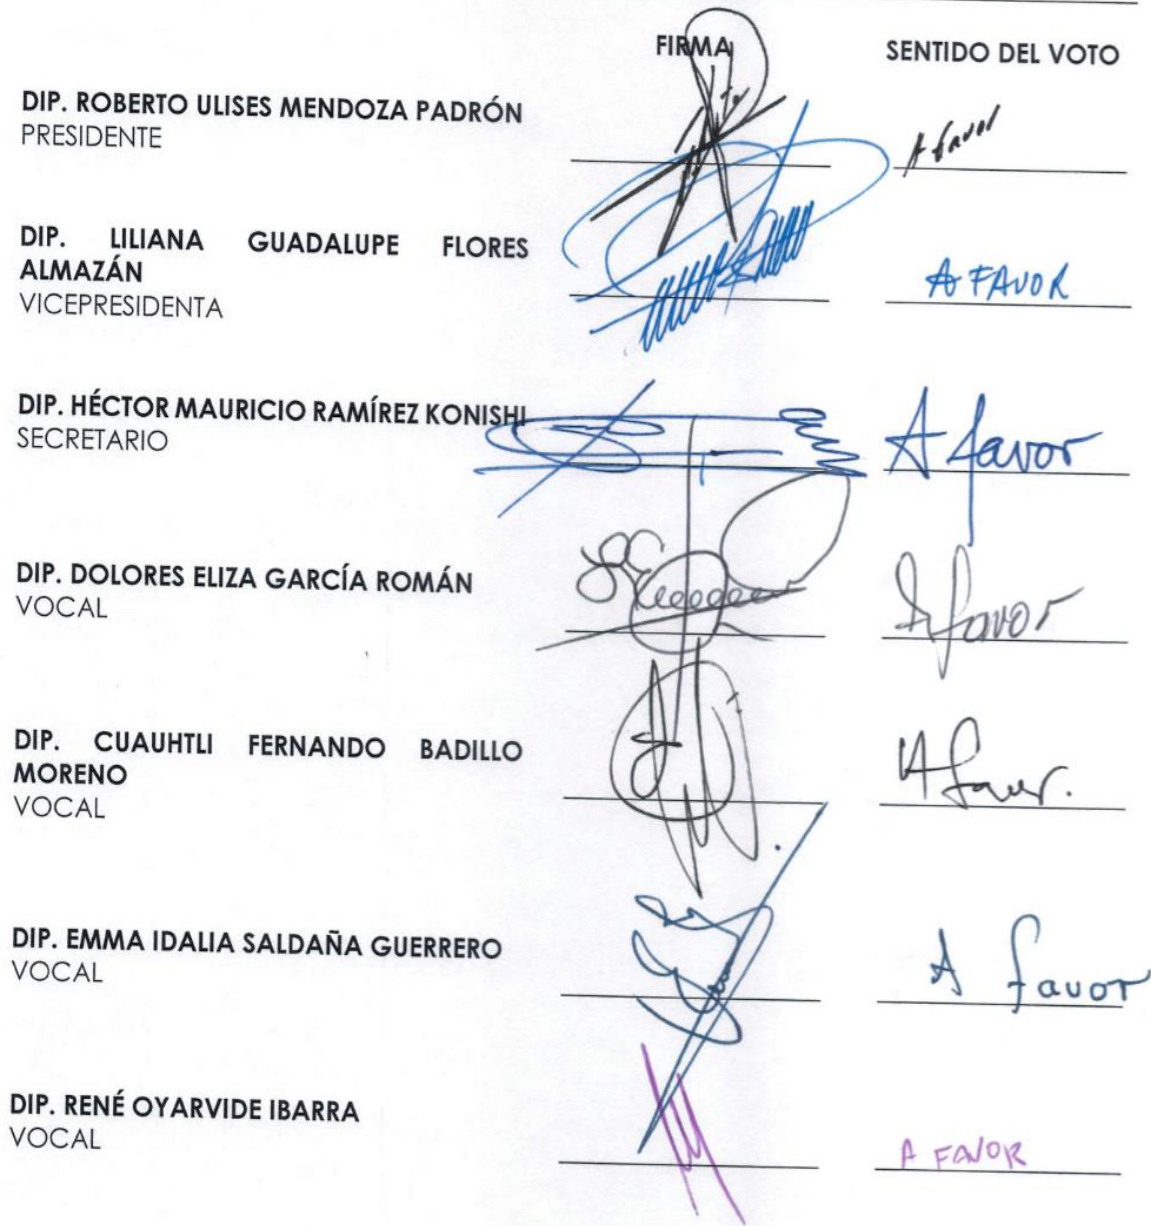 FIRMA SENTIDO DEL VOTO
DIP. ROBERTO ULISES MENDOZA PADRÓN
PRESIDENTE A favor
DIP. LILIANA GUADALUPE FLORES
ALMAZÁN
VICEPRESIDENTA A FAVOR
DIP. HÉCTOR MAURICIO RAMÍREZ KONISHI
SECRETARIO A favor
DIP. DOLORES ELIZA GARCÍA ROMÁN
VOCAL A favor
DIP. CUAUHTLI FERNANDO BADILLO
MORENO
VOCAL A favor.
DIP. EMMA IDALIA SALDAÑA GUERRERO
VOCAL A favor
DIP. RENÉ OYARVIDE IBARRA
VOCAL A FAVOR